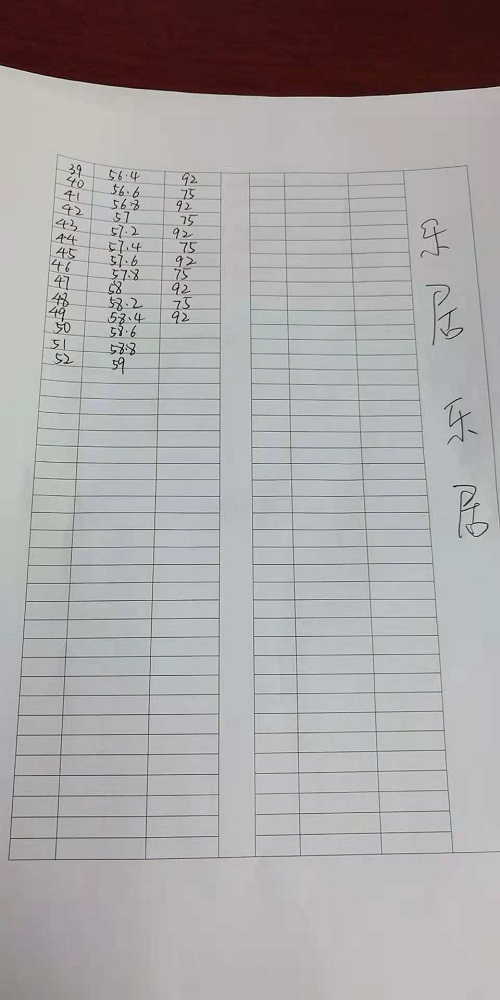 39 56.4 92
40 56.6 75
41 56.8 92
42 57 75
43 57.2 92
44 57.4 75
45 57.6 92
46 57.8 75
47 58 92
48 58.2 75
49 58.4 92
50 58.6
51 58.8
52 59
乐居乐居